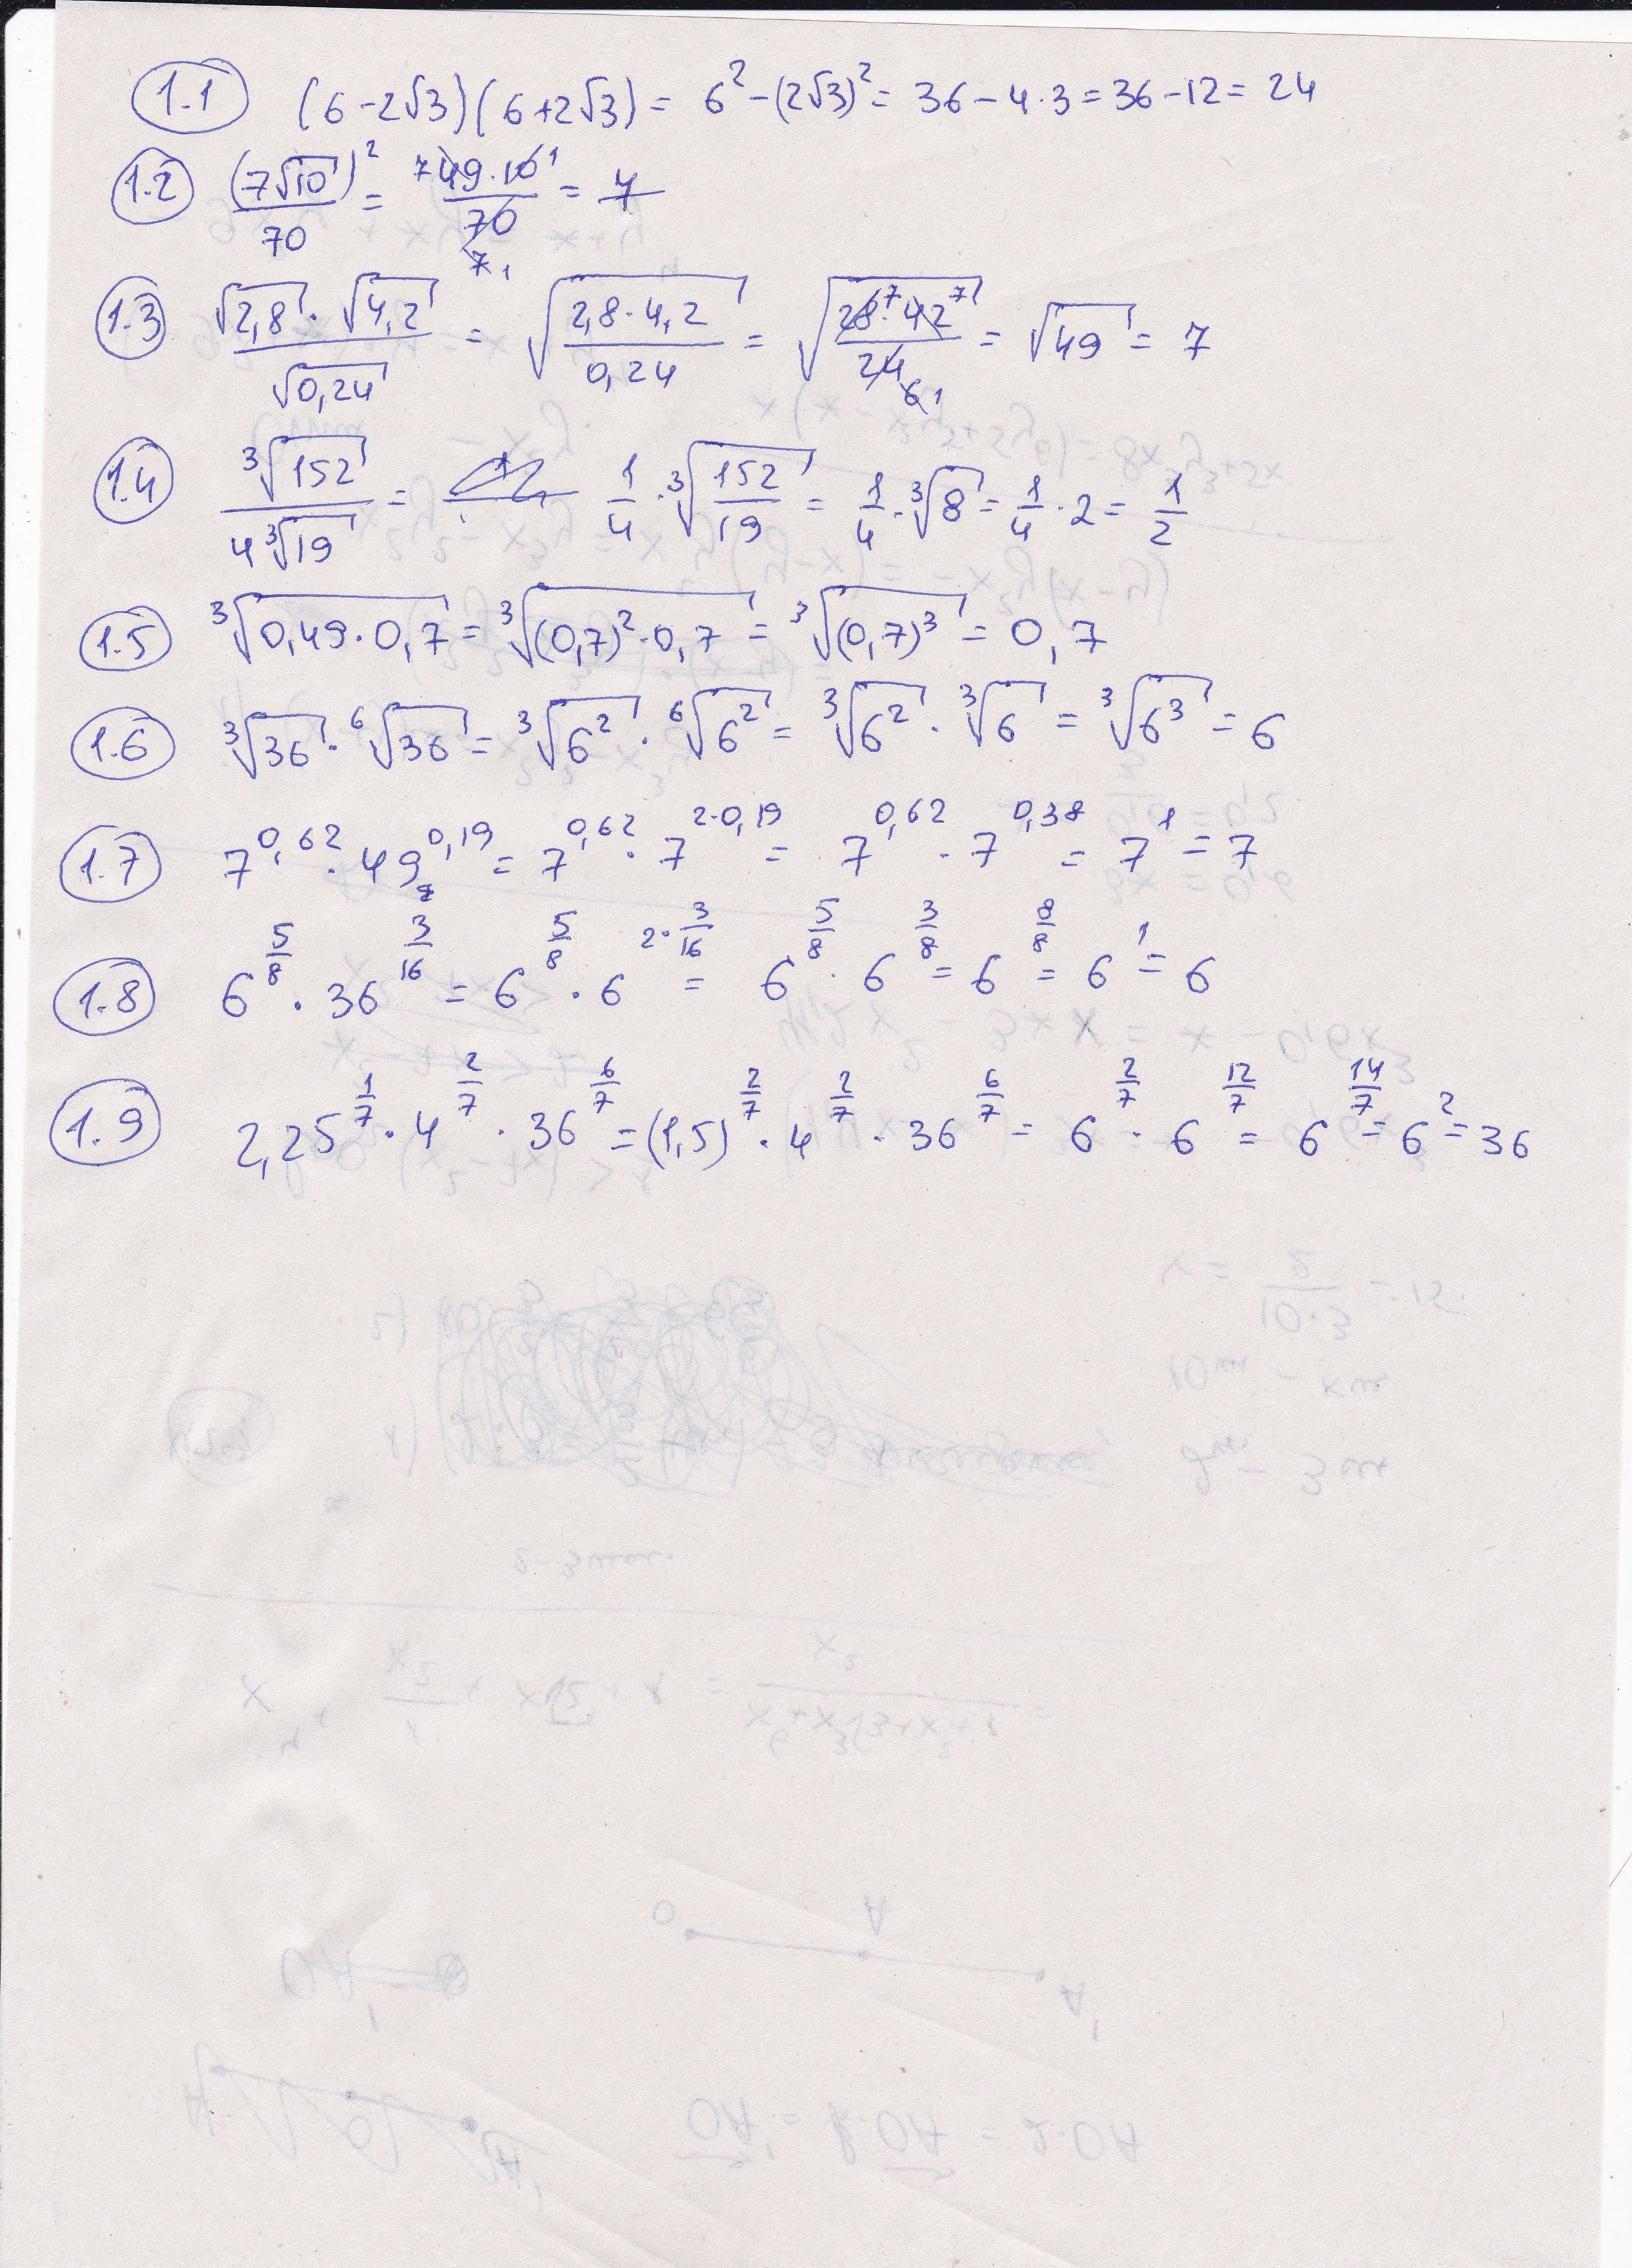 1.1 (6-2√3)(6+2√3) = 6² - (2√3)² = 36 - 4·3 = 36 - 12 = 24
1.2 (7√10)²/70 = 49·10/70 = 7
1.3 √2,8·√4,2/√0,24 = √(2,8·4,2/0,24) = √(28·42/24) = √49 = 7
1.4 ∛152/4∛19 = 1/4·∛(152/19) = 1/4·∛8 = 1/4·2 = 1/2
1.5 ∛(0,49·0,7) = ∛((0,7)²·0,7) = ∛((0,7)³) = 0,7
1.6 ∛36·⁶√36 = ∛(6²)·⁶√(6²) = ∛(6²)·∛6 = ∛(6³) = 6
1.7 7^0,62·49^0,19 = 7^0,62·7^2·0,19 = 7^0,62·7^0,38 = 7^1 = 7
1.8 6^5/8·36^3/16 = 6^5/8·6^2·3/16 = 6^5/8·6^3/8 = 6^8/8 = 6^1 = 6
1.9 2,25^1/7·4^2/7·36^6/7 = (1,5)^2/7·4^2/7·36^6/7 = 6^2/7·6^12/7 = 6^14/7 = 6² = 36